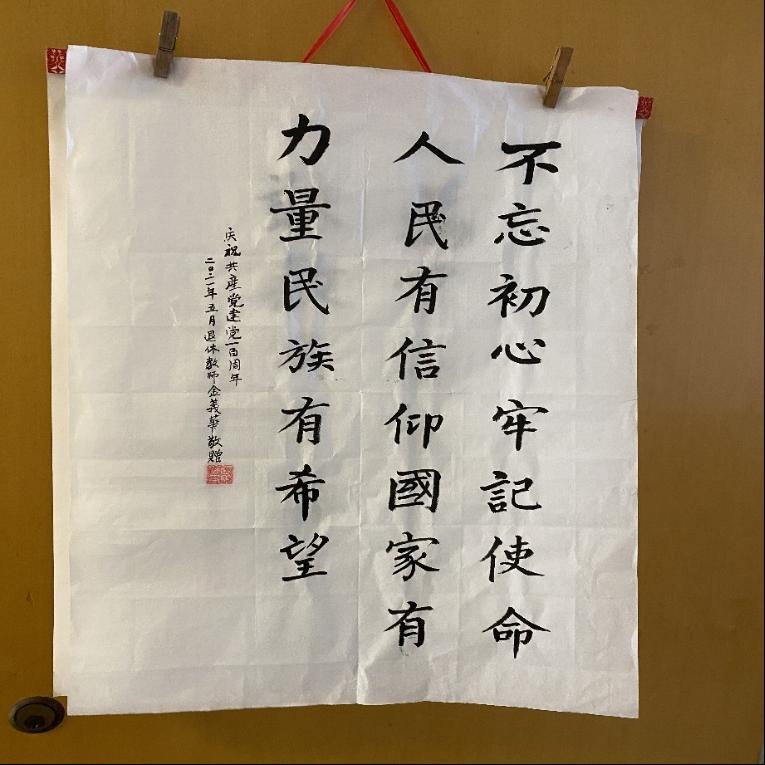 不忘初心牢記使命
人民有信仰國家有
力量民族有希望
庆祝共産党建党一百周年
二〇二一年五月退休教师金義華敬贈